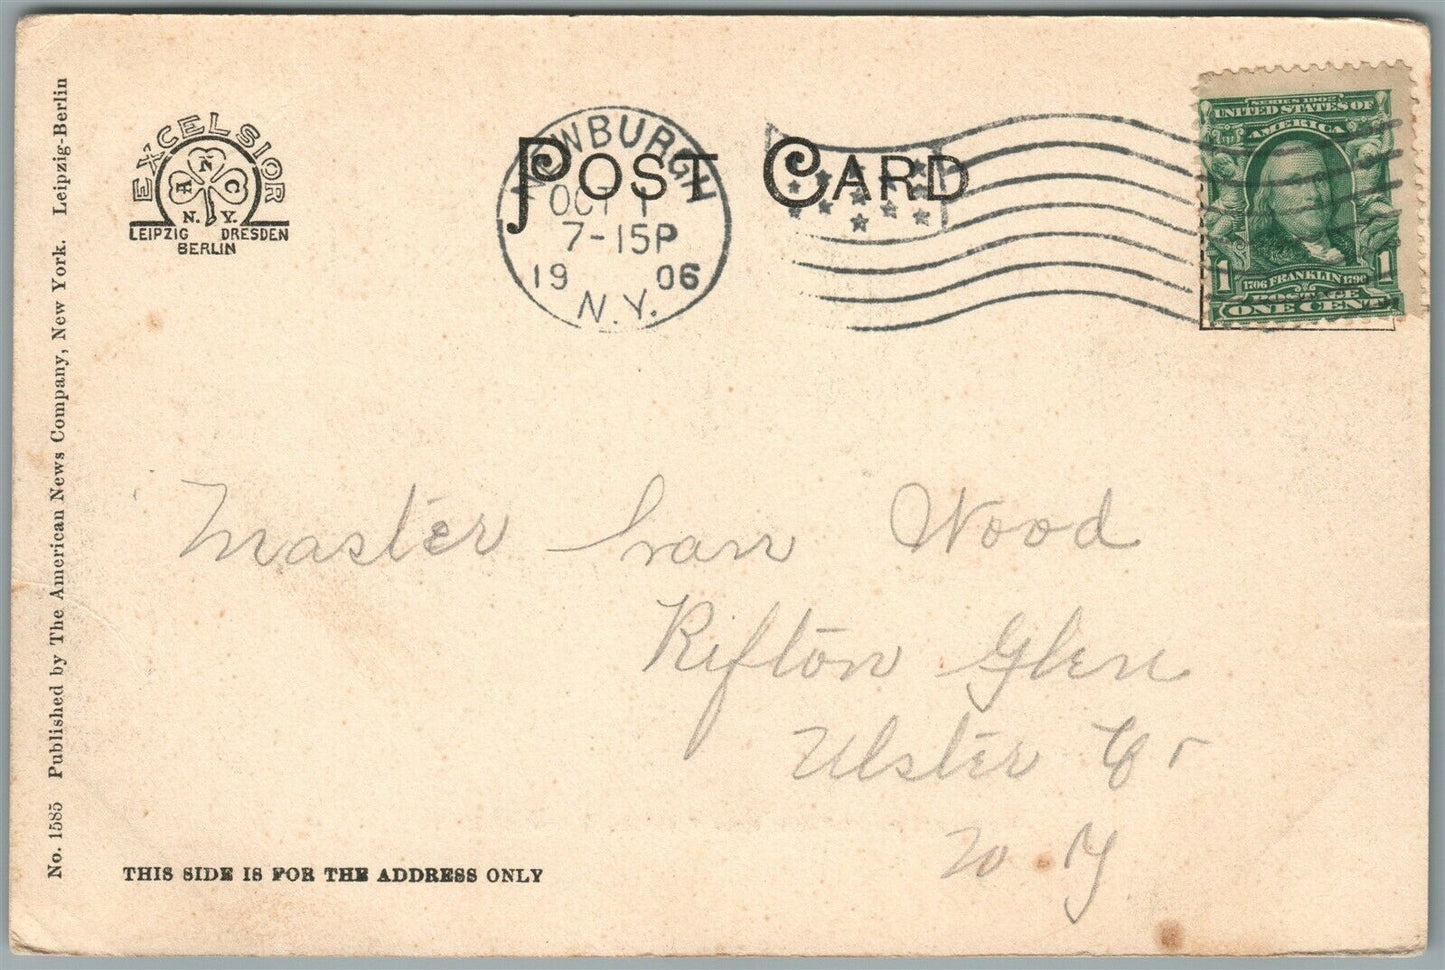 No. 1585 Published by The American News Company, New York. Leipzig-Berlin
EXCELSIOR
A N C
N. Y.
LEIPZIG DRESDEN
BERLIN
POST CARD
NEWBURGH
OCT 1
7-15P
19 06
N.Y.
SERIES 1902
UNITED STATES OF
AMERICA
1706 FRANKLIN 1790
1 1
POSTAGE
ONE CENT
Master Ivan Wood
Rifton Glen
Ulster Co
N. Y
THIS SIDE IS FOR THE ADDRESS ONLY